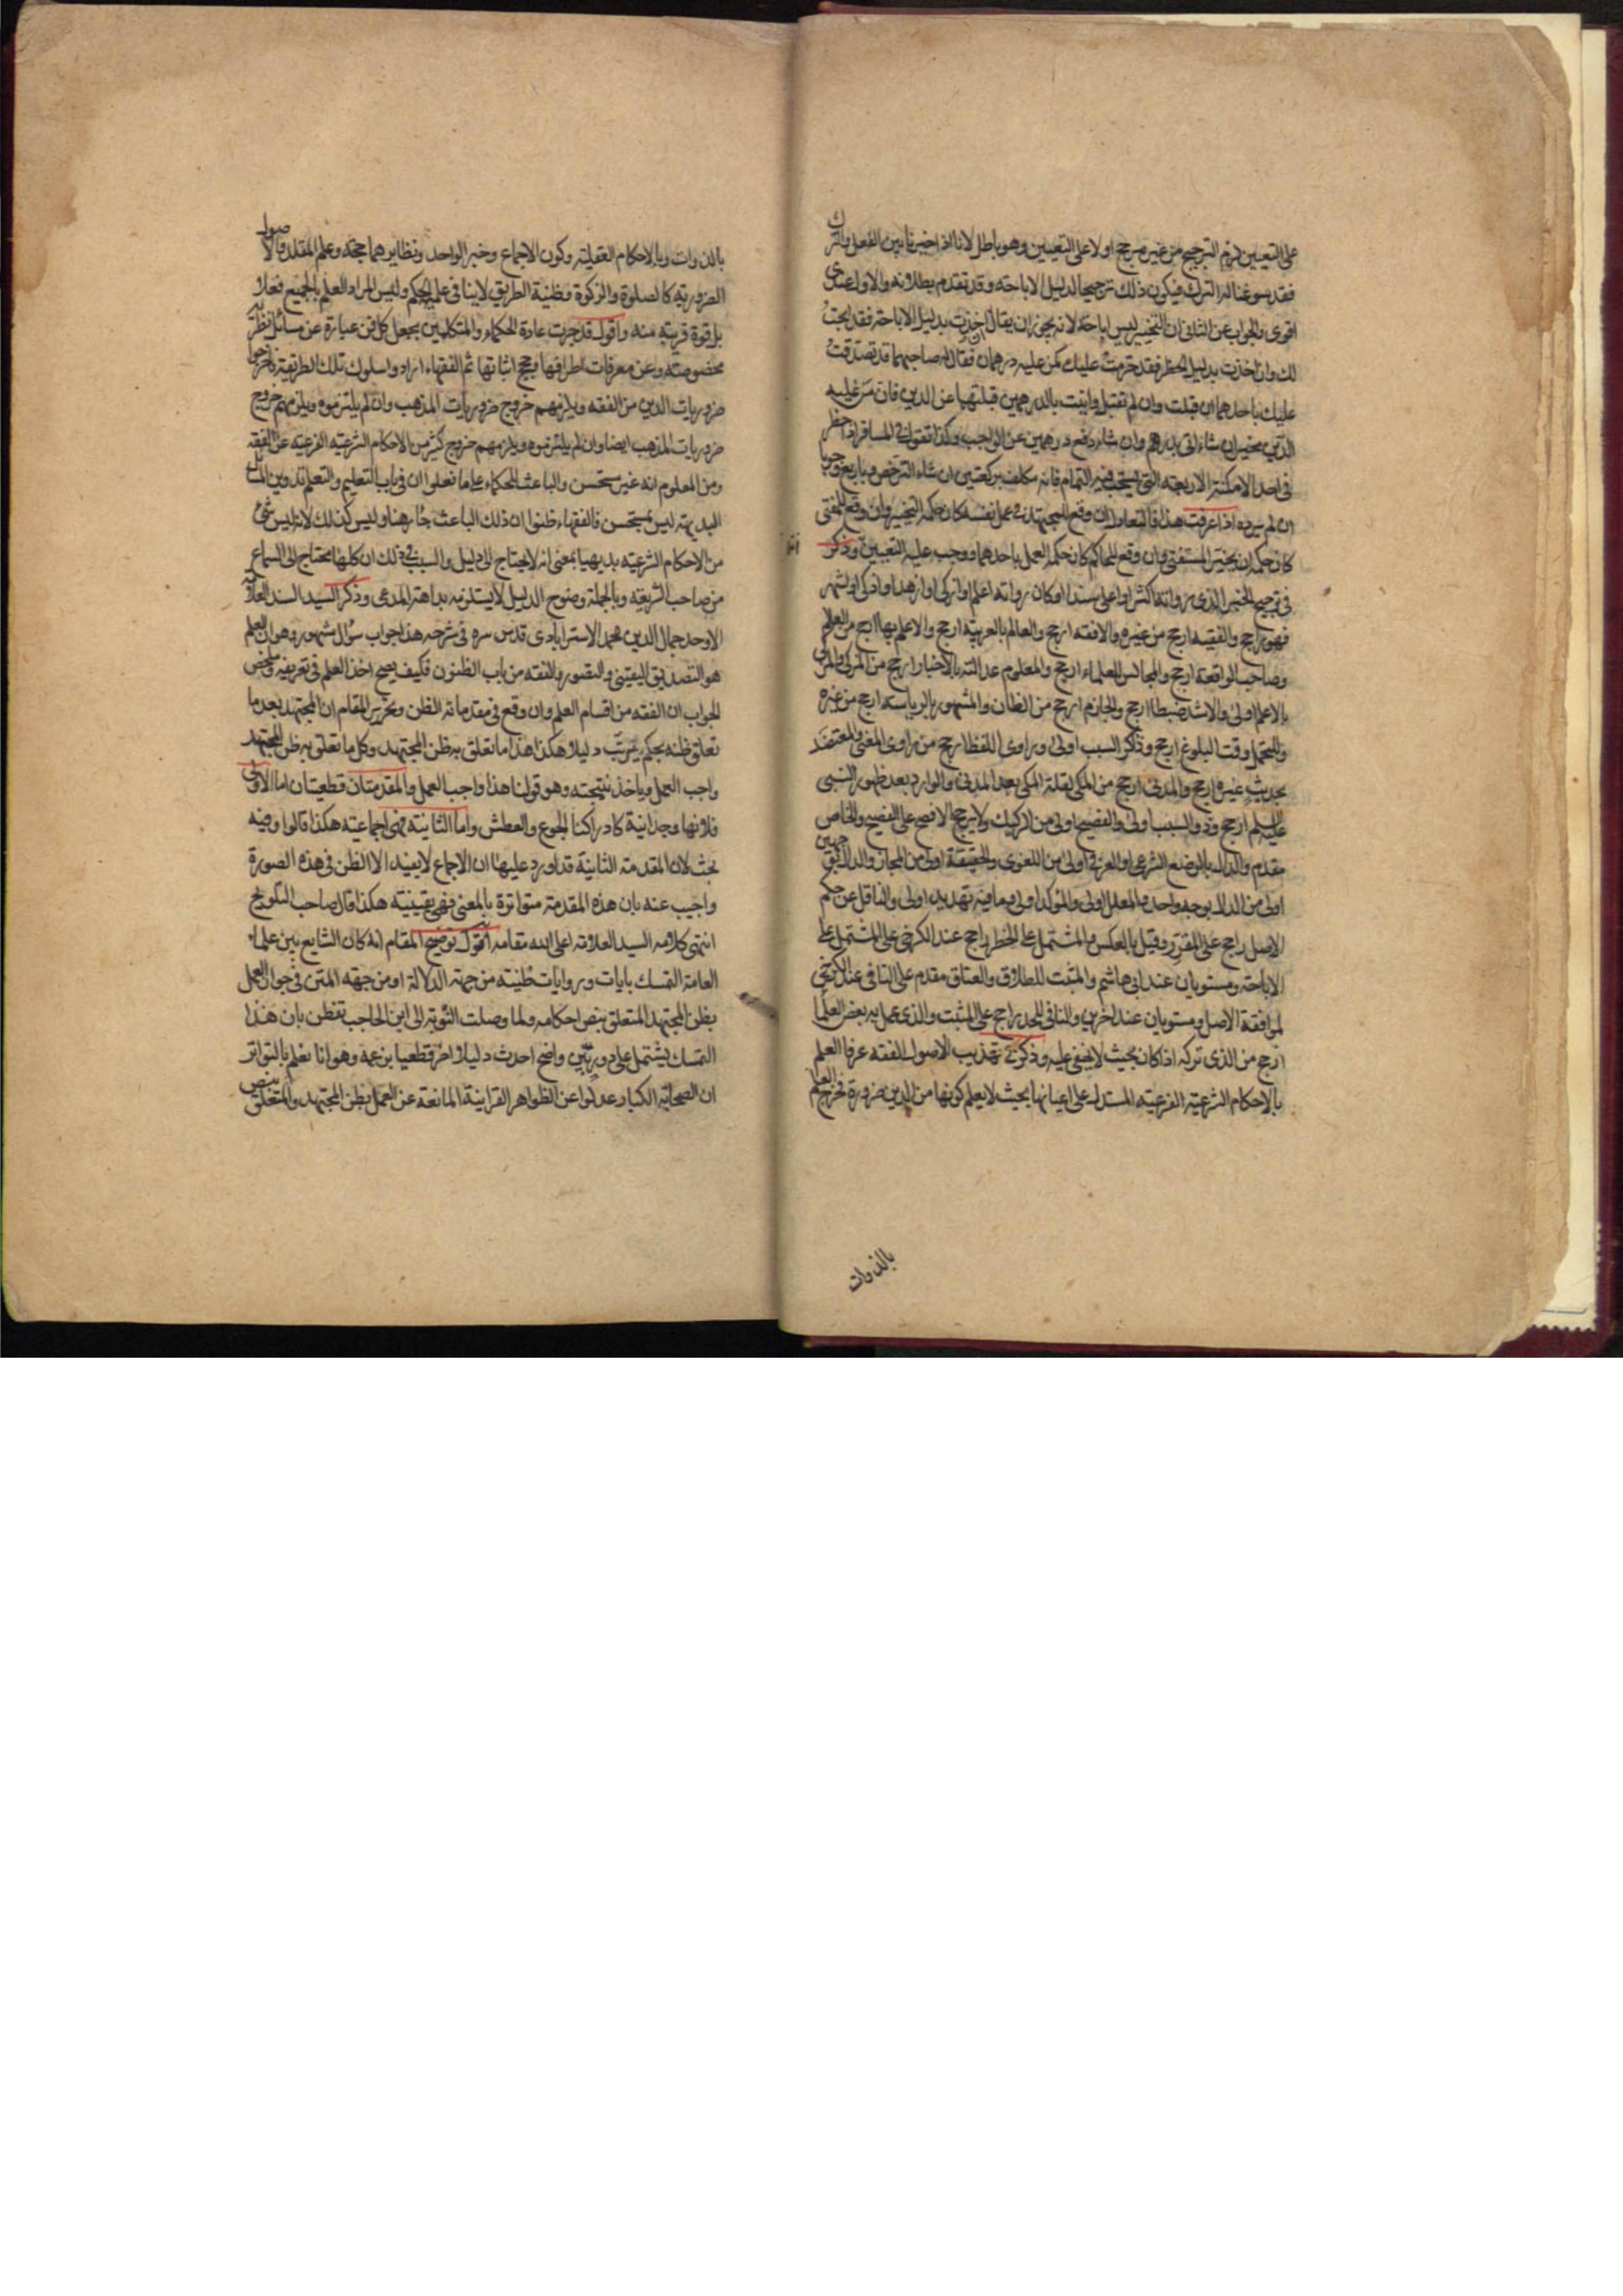 على التعيين لزم الترجيح من غير مرجح او لا على التعيين وهو باطل لانا اذا خيرنا بين الفعل والترك
فقد سوغنا له الترك فيكون ذلك ترجيحا لدليل الاباحة وقد تقدم بطلانه والاول عندى
اقوى والجواب عن الثانى ان التخيير ليس اباحة لانه يجوز ان يقال ان اخذت بدليل الاباحة فقد ابحت
لك وان اخذت بدليل الحظر فقد حرمت عليك كمن عليه درهمان فقال له صاحبهما قد تصدقت
عليك باحدهما ان قبلت وان لم تقبل واتيت بالدرهمين قبلتهما عن الدين فان من عليه
الدين مخير ان شاء اتى بدرهم وان شاء دفع درهمين عن الواجب وكذا نقول فى المسافر اذا حظر
فى احد الامكنة الاربعة التى يستحب فيها التمام فانه مكلف بركعتين ان شاء الترخص وباربع وجوبا
ان لم يرده اذا عرفت هذا فالتعادل ان وقع للمجتهد فى عمل نفسه كان حكمه التخيير وان وقع للمفتى
كان حكمه ان يخير المستفتى وان وقع للحاكم كان حكمه العمل باحدهما ووجب عليه التعيين وذكر
فى ترجيح الخبر الذى رواته اكثر او اعلى سندا او كان رواته اعلم او ازكى او ازهد او اذكى او اشهر
فهو راجح والفقيه ارجح من غيره والافقه ارجح والعالم بالعربية ارجح والاعلم بها ارجح من العالم
وصاحب الواقعة ارجح والمجالس للعلماء ارجح والمعلوم عدالته بالاختبار ارجح من المزكى والمزكى
بالاعلم اولى والاشد ضبطا ارجح والجازم ارجح من الظان والمشهور بالرياسة ارجح من غيره
والمتحمل وقت البلوغ ارجح وذاكر السبب اولى وراوى اللفظ ارجح من راوى المعنى والمعتضد
بحديث غيره ارجح والمدنى ارجح من المكى لقلة المكى بعد المدنى والوارد بعد ظهور النبى
عليه السلم ارجح وذو السبب اولى والفصيح اولى من الركيك ولا يرجح الافصح على الفصيح والخاص
مقدم والدال بالوضع الشرعى او العرفى اولى من اللغوى والحقيقة اولى من المجاز والدال بوجهين
اولى من الدال بوجه واحد والمعلل اولى والمؤكد اولى وما فيه تهديد اولى والناقل عن حكم
الاصل راجح على المقرر وقيل بالعكس والمشتمل على الحظر راجح عند الكرخى على المشتمل على
الاباحة ومستويان عند ابى هاشم والمثبت للطلاق والعتاق مقدم على النافى عند الكرخى
لموافقة الاصل ومستويان عند اخرين والنافى للحد راجح على المثبت والذى عمل به بعض العلما
ارجح من الذى تركه اذا كان بحيث لا يخفى عليه وذكر فى تهذيب الاصول الفقه عرفا العلم
بالاحكام الشرعية الفرعية المستدل على اعيانها بحيث لا يعلم كونها من الدين ضرورة فخرج العلم
بالذوات
بالذوات وبالاحكام العقلية وكون الاجماع وخبر الواحد ونظايرهما حجة وعلم المقلد والاصول
الضرورية كالصلوة والزكوة وظنية الطريق لا ينافى علمية الحكم وليس المراد العلم بالجميع فعلا
بل قوة قريبة منه واقول قد جرت عادة الحكماء والمتكلمين بجعل كل فن عبارة عن مسائل نظرية
مخصوصة وعن معرفات اطرافها وحجج اثباتها ثم الفقهاء ارادوا سلوك تلك الطريقة فاخرجوا
ضروريات الدين من الفقه ويلزمهم خروج ضروريات المذهب وان لم يلتزموه ويلزمهم خروج
ضروريات المذهب ايضا وان لم يلتزموه ويلزمهم خروج كثير من الاحكام الشرعية الفرعية عن الفقه
ومن المعلوم انه غير مستحسن والباعث للحكماء على ما فعلوا ان فى باب التعليم والتعلم تدوين المسائل
البديهية ليس بمستحسن فالفقهاء ظنوا ان ذلك الباعث جار هنا وليس كذلك لانه ليس شئ
من الاحكام الشرعية بديهيا بمعنى انه لا يحتاج الى دليل والسبب فى ذلك ان كلها محتاج الى السماع
من صاحب الشريعة وبالجملة وضوح الدليل لا يستلزم بداهة المدعى وذكر السيد السند العلامة
الاوحد جمال الدين محمد الاسترابادى قدس سره فى شرحه هذا جواب سؤال مشهور وهو ان العلم
هو التصديق اليقينى والتصور والفقه من باب الظنون فكيف يصح اخذ العلم فى تعريفه وملخص
الجواب ان الفقه من اقسام العلم وان وقع فى مقدماته الظن وتحرير المقام ان المجتهد بعد ما
تعلق ظنه بحكم يرتب دليلا هكذا هذا ما تعلق به ظن المجتهد وكل ما تعلق به ظن المجتهد
واجب العمل وياخذ نتيجته وهو قولنا هذا واجب العمل والمقدمتان قطعيتان اما الاولى
فلانها وجدانية كادراكنا الجوع والعطش واما الثانية فهى اجماعية هكذا قالوا وفيه
بحث لان المقدمة الثانية قد اورد عليها ان الاجماع لا يفيد الا الظن فى هذه الصورة
واجيب عنه بان هذه المقدمة متواترة بالمعنى فهى يقينية هكذا قال صاحب التلويح
انتهى كلامه السيد العلامة اعلى الله مقامه اقول توضيح المقام انه كان الشايع بين علماء
العامة التمسك بايات وروايات ظنية من جهة الدلالة او من جهة المتن فى جواز العمل
بظن المجتهد المتعلق بنفس احكامه ولما وصلت النوبة الى ابن الحاجب تفطن بان هذا
التمسك يشتمل على دور بين واضح احدث دليلا اخر قطعيا بزعمه وهو انا نعلم بالتواتر
ان الصحابة الكبار عدلوا عن الظواهر القرانية المانعة عن العمل بظن المجتهد والمتعلق بنفس